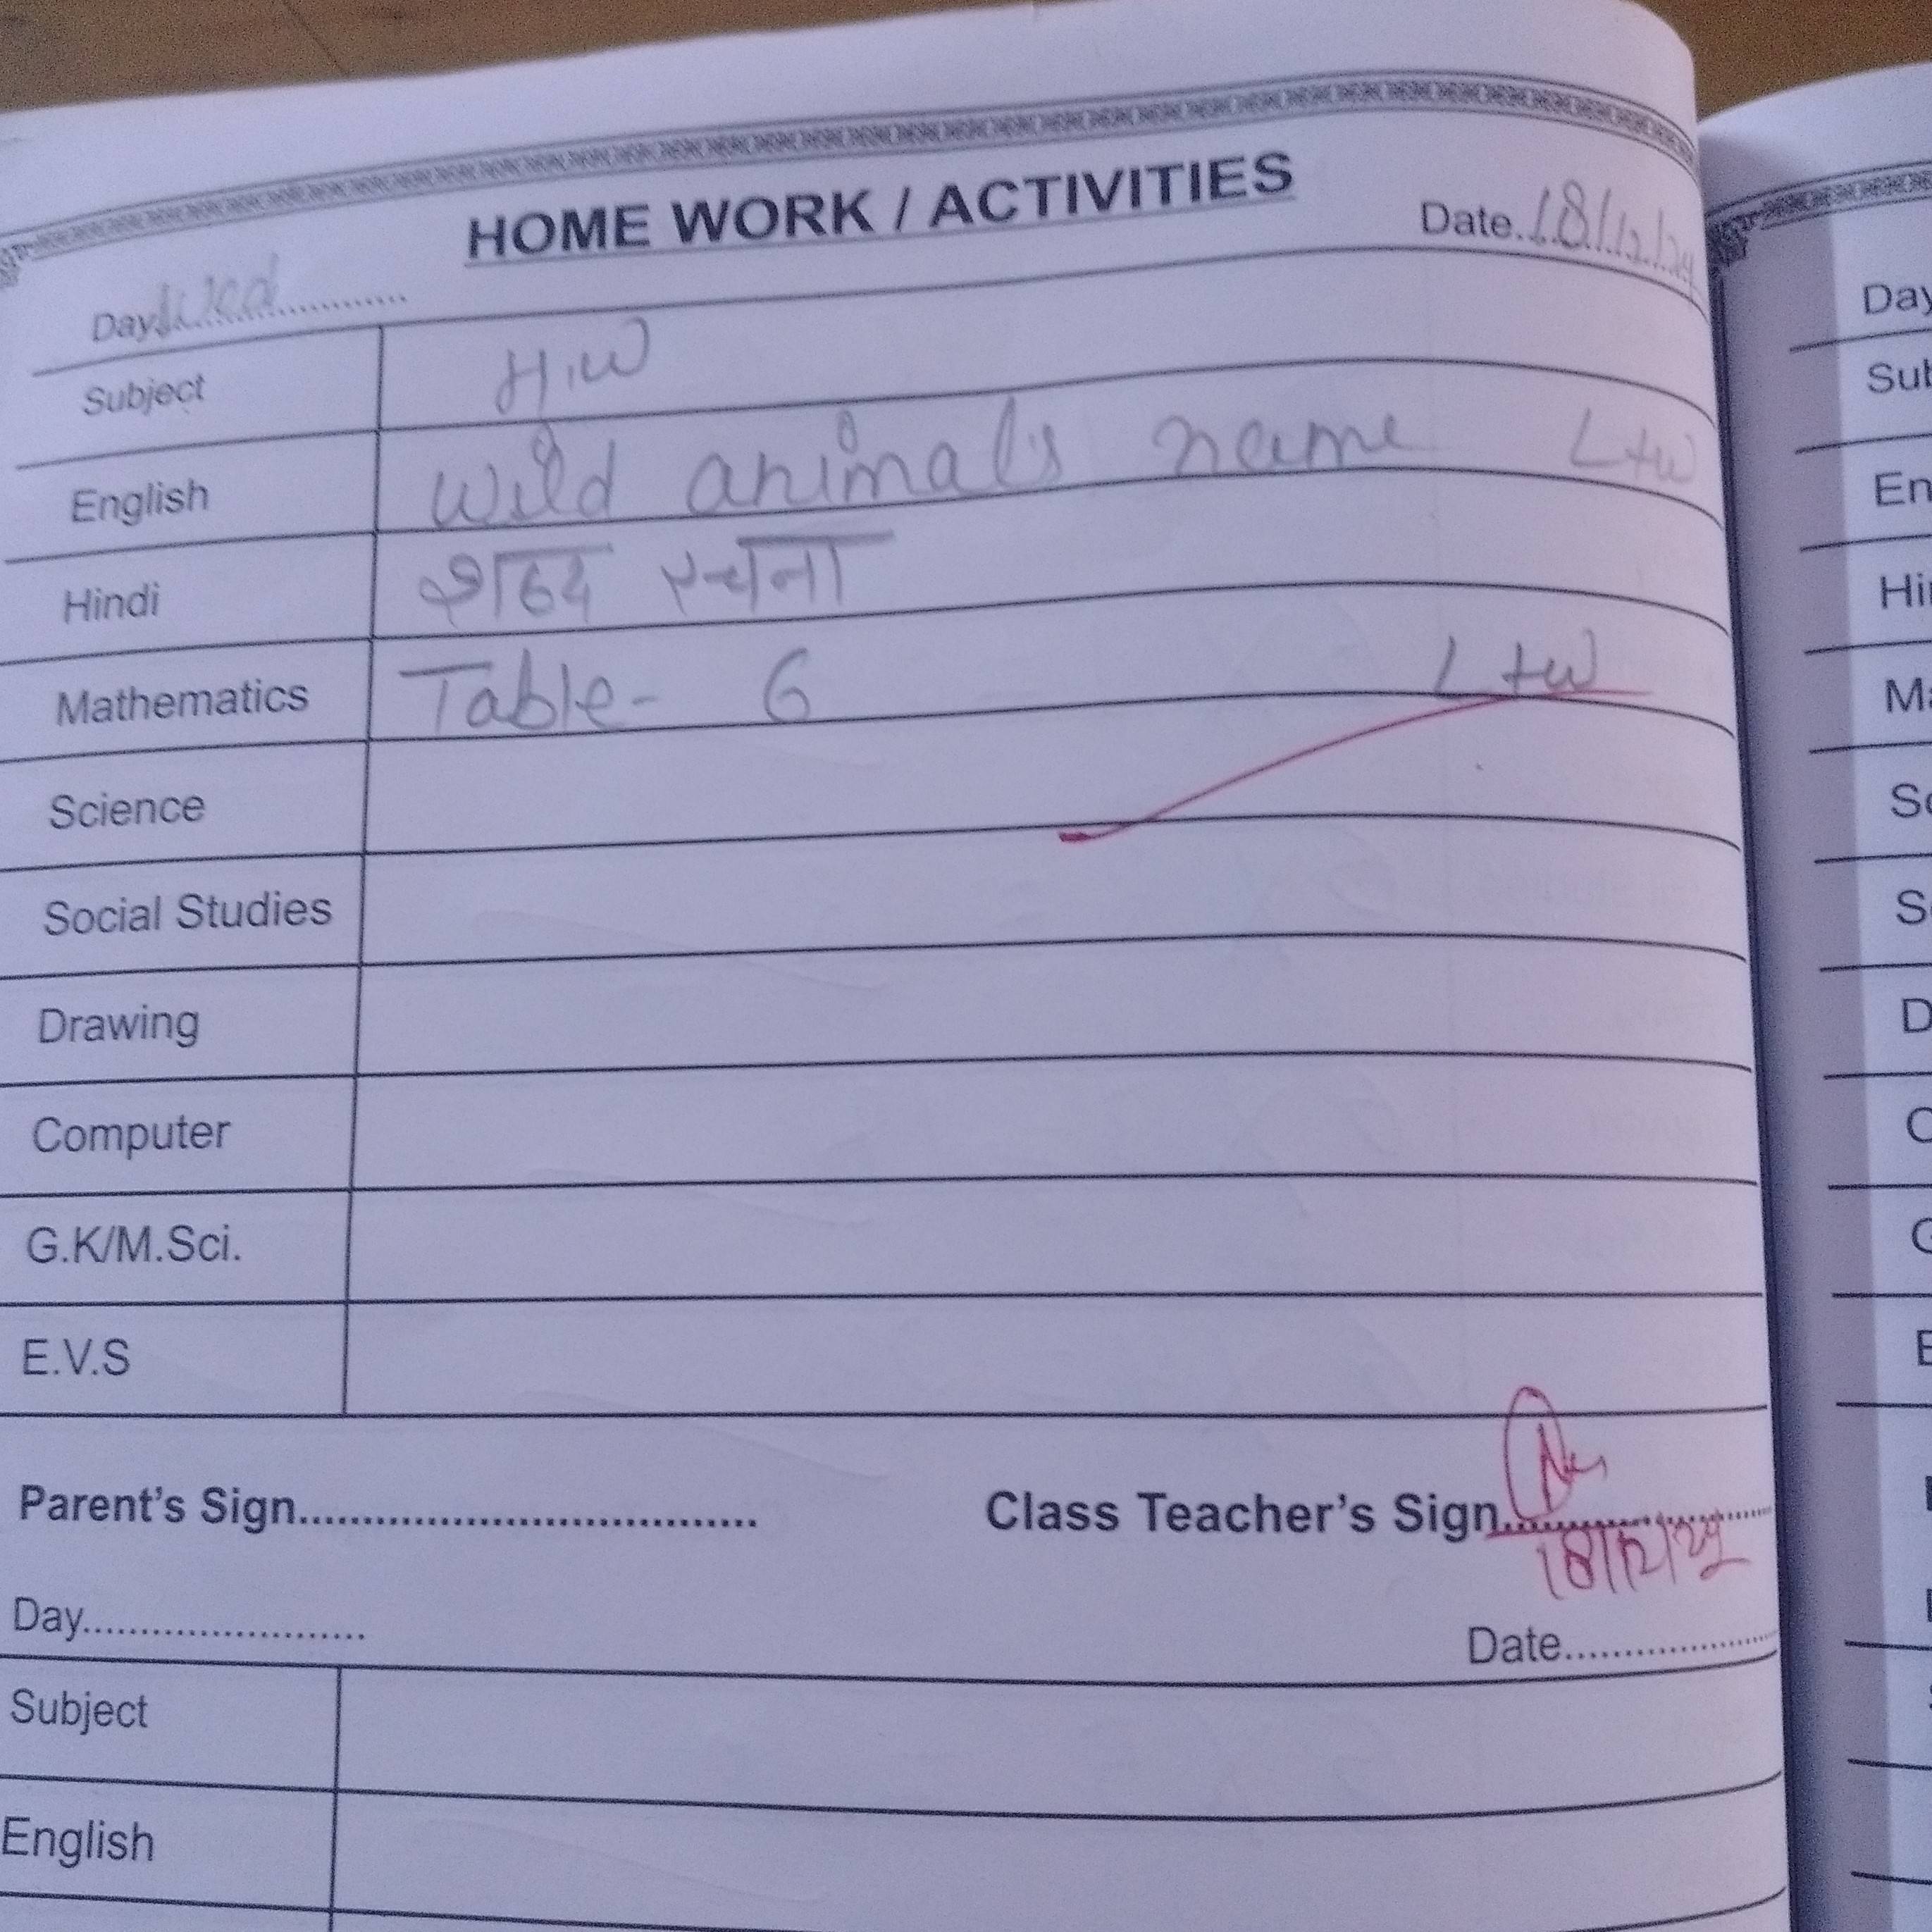 HOME WORK / ACTIVITIES
Day Wed Date 18/12/24
Subject H.W
English Wild animals name L+W
Hindi शब्द रचना
Mathematics Table- 6 L+W
Science
Social Studies
Drawing
Computer
G.K/M.Sci.
E.V.S
Parent's Sign Class Teacher's Sign
18/12/24
Day Date
Subject
English
Day